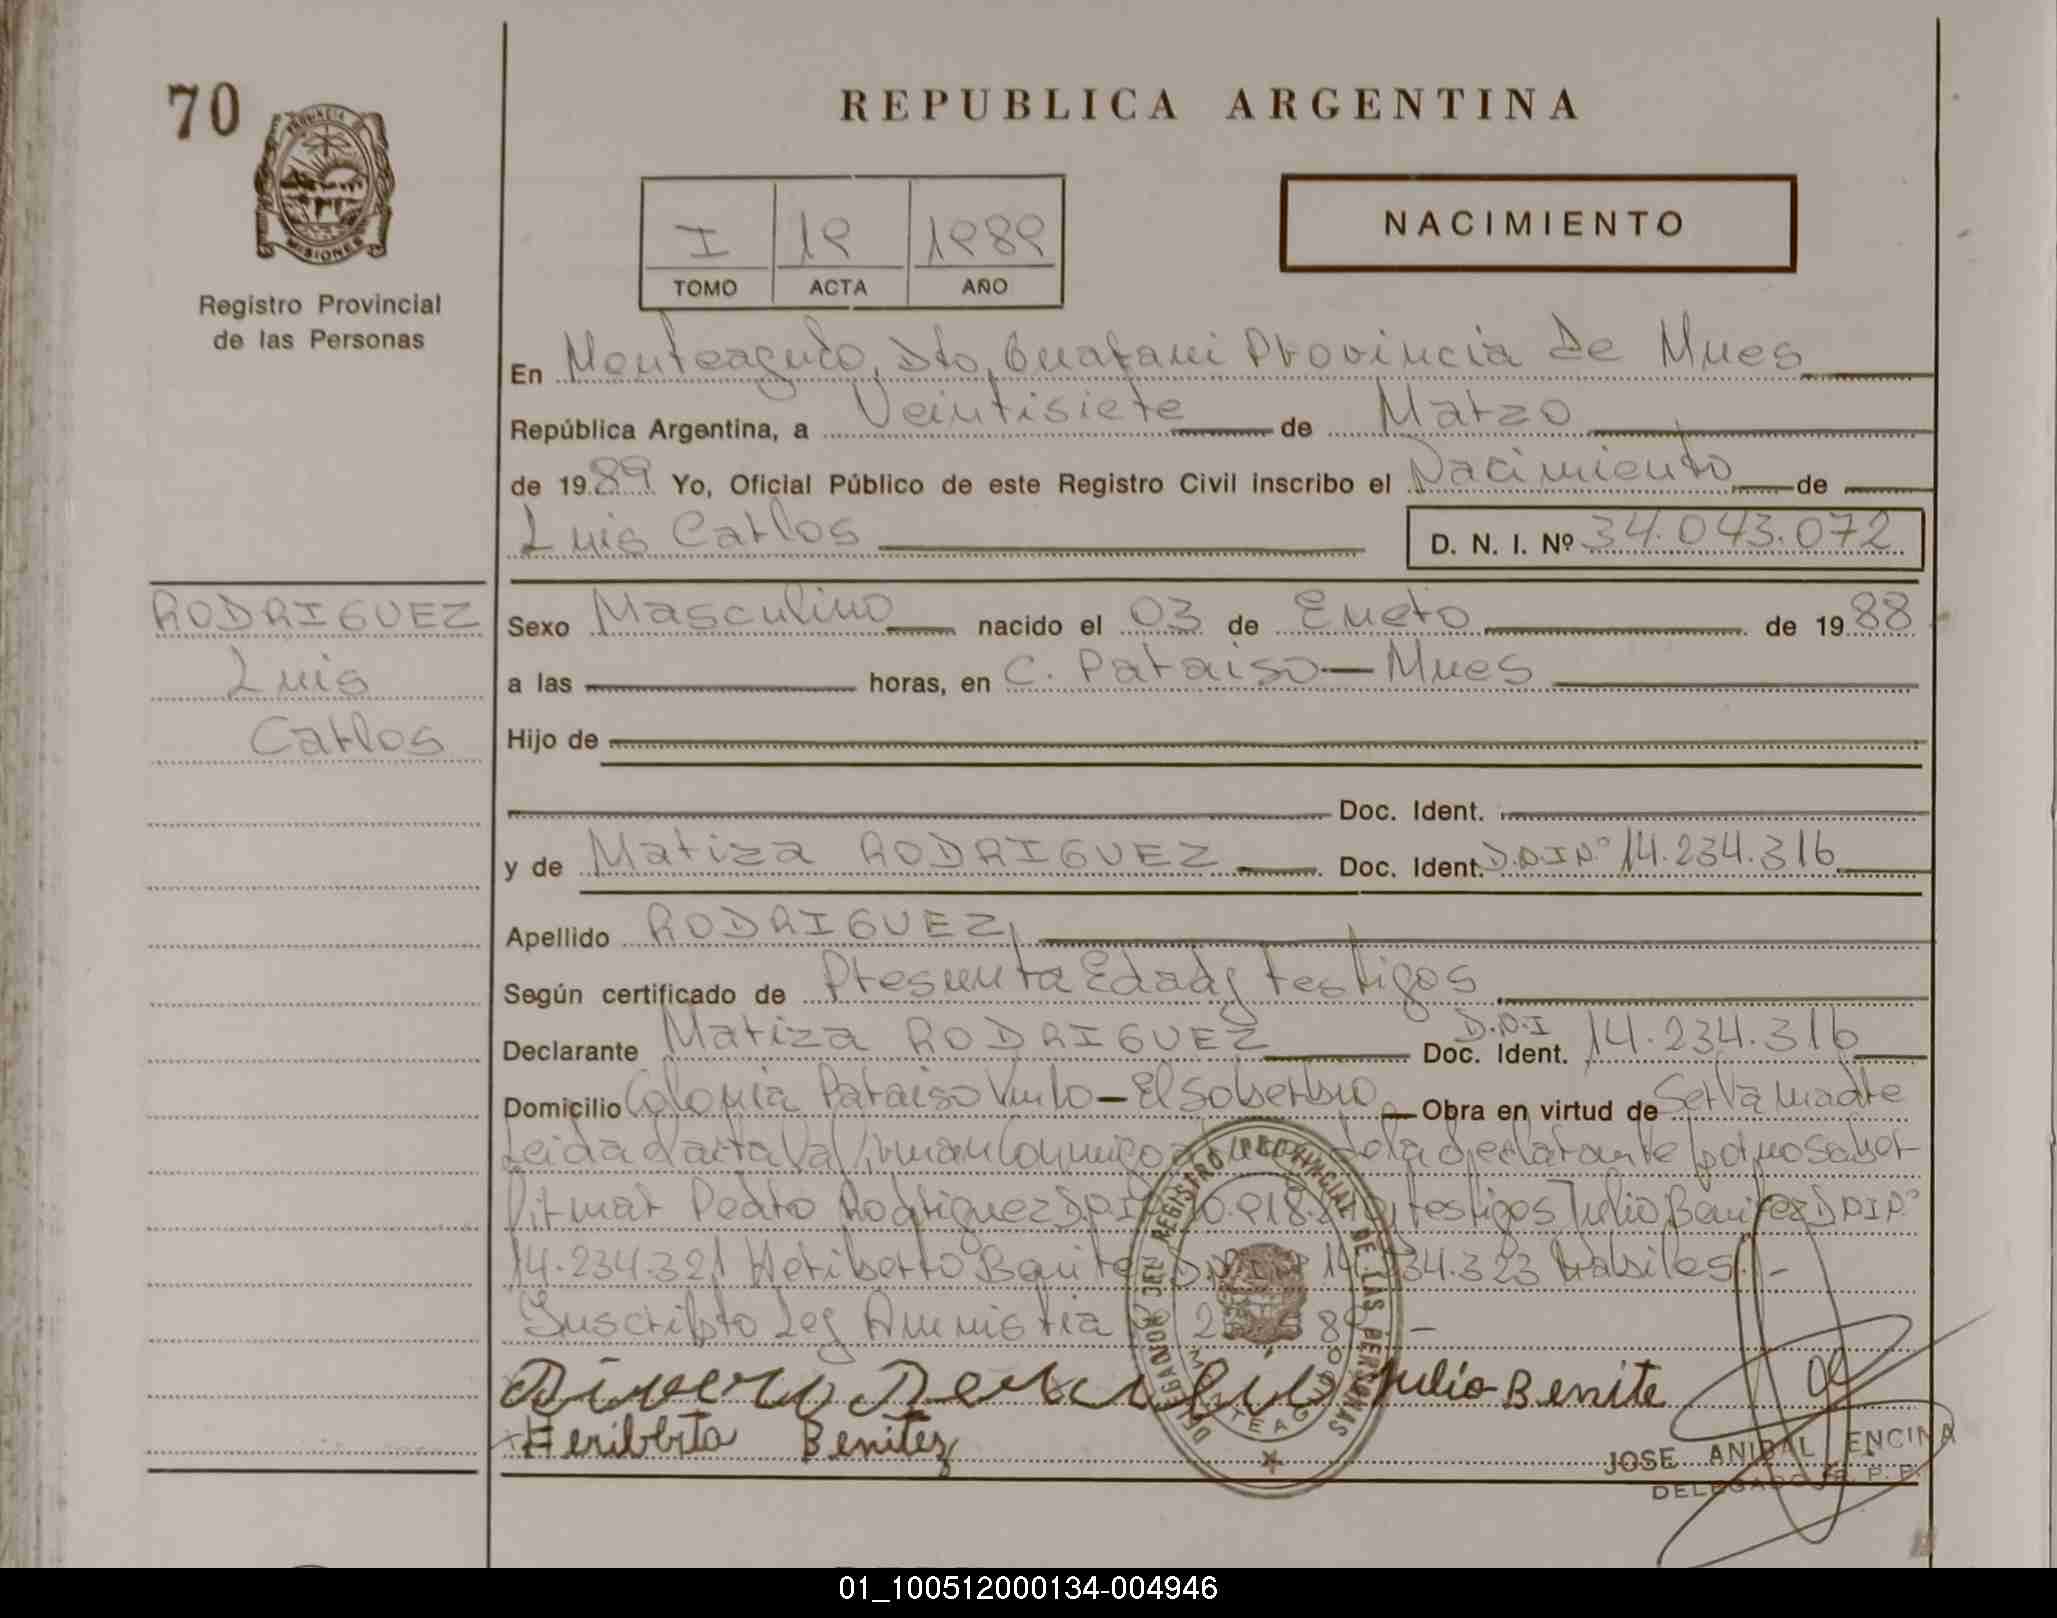 70
REPUBLICA ARGENTINA
PROVINCIA DE
MISIONES
Registro Provincial
de las Personas
I 19 1989
TOMO ACTA AÑO
NACIMIENTO
En Monteagudo, Dto, Guarani Provincia de Mnes
República Argentina, a Veintisiete de Marzo
de 1989 Yo, Oficial Público de este Registro Civil inscribo el Nacimiento de
Luis Carlos D. N. I. Nº 34.043.072
RODRIGUEZ
Luis
Carlos
Sexo Masculino nacido el 03 de Enero de 1988
a las horas, en C. Paraiso - Mnes
Hijo de
Doc. Ident.
y de Mariza RODRIGUEZ Doc. Ident. D.N.I Nº 14.234.316
Apellido RODRIGUEZ
Según certificado de Presunta Edad y testigos
Declarante Mariza RODRIGUEZ Doc. Ident. D.N.I 14.234.316
Domicilio Colonia Paraiso - El Soberbio Obra en virtud de Ser la madre
Leida el acta la firman conmigo de la declarante por no saber
firmar Pedro Rodriguez D.N.I testigos Julio Benitez D.N.I Nº
14.234.321 Heriberto Benitez D.N.I Nº 14.234.323 habiles. -
Suscripto Ley Amnistia
Julio Benite
Heribbito Benitez
DELEGACION DEL REGISTRO PROVINCIAL DE LAS PERSONAS
MONTEAGUDO
JOSE ANIBAL ENCINA
DELEGADO R. P. P.
01_100512000134-004946